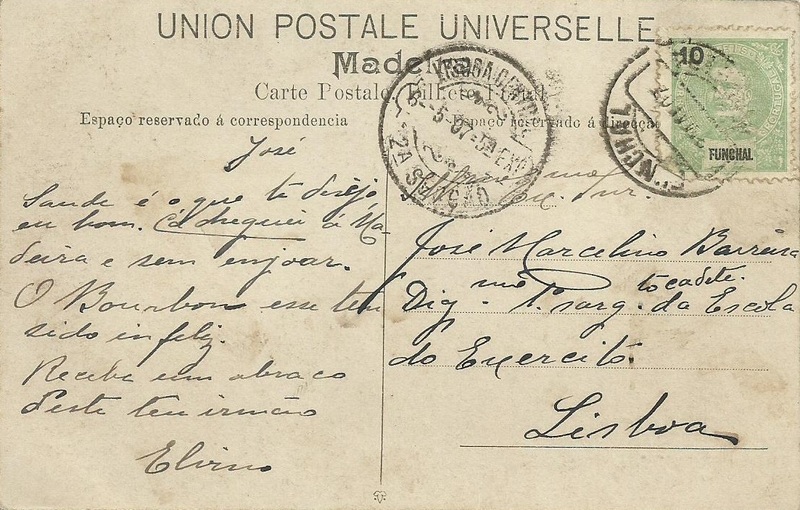 UNION POSTALE UNIVERSELLE
Madeira
Carte Postale Bilhete Postal
Espaço reservado á correspondencia
Espaço reservado á direcção
10
FUNCHAL
FUNCHAL
LISBOA CENTRAL
5-07
2A SEC
José
Saude é o que te desejo
eu bom. Cá cheguei á Ma-
deira e sem enjoar.
O Bourbon esse tem
sido infeliz.
Receba um abraço
deste teu irmão
Elvino
Snr.
José Marcelino Barreira
Dig.mo 1.º sarg.to cadete da Escola
do Exercito.
Lisboa